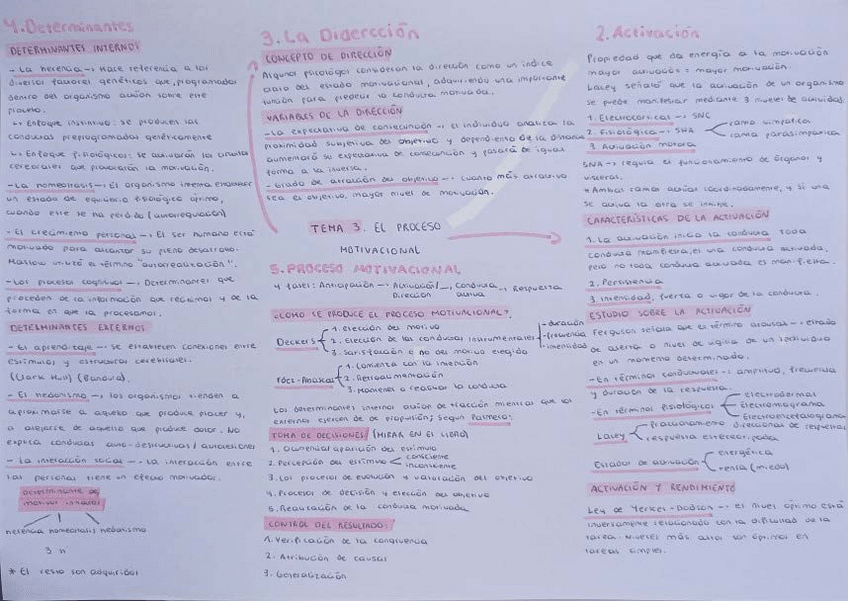 4. Determinantes
DETERMINANTES INTERNOS
- La herencia → Hace referencia a los
diversos factores genéticos que, programados
dentro del organismo actúan sobre este
proceso.
↳ Enfoque instintivo: se producen las
conductas preprogramadas genéticamente
↳ Enfoque fisiológicos: se activarán los circuitos
cerebrales que provocarán la motivación.
- La homeostasis → El organismo intenta encontrar
un estado de equilibrio fisiológico óptimo,
cuando este se ha perdido (autorregulación)
- El crecimiento personal → El ser humano está
motivado para alcanzar su pleno desarrollo.
Maslow utilizó el término "autorrealización".
- Los procesos cognitivos → Determinantes que
proceden de la información que recibimos y de la
forma en que la procesamos.
DETERMINANTES EXTERNOS
- El aprendizaje → se establecen conexiones entre
estímulos y estructuras cerebrales.
(Clark Hull) (Bandura).
- El hedonismo → los organismos tienden a
aproximarse a aquello que produce placer y,
a alejarse de aquello que produce dolor. No
explica conductas auto-destructivas / autolesiones
- La interacción social → La interacción entre
las personas tiene un efecto motivador.
Determinante de
motivos innatos
herencia homeostasis hedonismo
* El resto son adquiridos
3. La Dirección
CONCEPTO DE DIRECCIÓN
Algunos psicólogos consideran la dirección como un índice
claro del estado motivacional, adquiriendo una importante
función para predecir la conducta motivada.
VARIABLES DE LA DIRECCIÓN
- La expectativa de consecución → el individuo analiza la
proximidad subjetiva del objetivo y dependiendo de la distancia
aumentará su expectativa de consecución y pasará de igual
forma a la inversa.
- Grado de atracción del objetivo → cuanto más atractivo
sea el objetivo, mayor nivel de motivación.
TEMA 3. EL PROCESO
MOTIVACIONAL
5. PROCESO MOTIVACIONAL
4 fases: Anticipación → Activación/Dirección → Conducta activa → Respuesta
¿CÓMO SE PRODUCE EL PROCESO MOTIVACIONAL?
Deckers
1. Elección del motivo
2. Elección de las conductas instrumentales
- duración
- frecuencia
- intensidad
3. Satisfacción o no del motivo elegido
1. Comienza con la intención
2. Retroalimentación
3. Mantener o reactivar la conducta
Los determinantes internos actúan de tracción mientras que los
externos ejercen de de propulsión; según Palmero:
TOMA DE DECISIONES (MIRAR EN EL LIBRO)
1. Ocurrencia/ aparición del estímulo
2. Percepción del estímulo
consciente
inconsciente
3. Los procesos de evaluación y valoración del objetivo
4. Procesos de decisión y elección del objetivo
5. Realización de la conducta motivada
CONTROL DEL RESULTADO:
1. Verificación de la congruencia
2. Atribución de causas
3. Generalización
2. Activación
Propiedad que da energía a la motivación
mayor activación: mayor motivación.
Lacey señaló que la activación de un organismo
se puede manifestar mediante 3 niveles de actividad.
1. Electrocortical → SNC
2. Fisiológica → SNA
rama simpática
rama parasimpática
3. Activación motora
SNA → regula el funcionamiento de órganos y
vísceras.
* Ambas ramas actúan coordinadamente, y si una
se activa la otra se inhibe.
CARACTERÍSTICAS DE LA ACTIVACIÓN
1. La activación inicia la conducta. Toda
conducta manifiesta, es una conducta activada,
pero no toda conducta activada es manifiesta.
2. Persistencia
3. Intensidad, fuerza o vigor de la conducta.
ESTUDIO SOBRE LA ACTIVACIÓN
Ferguson señala que el término arousal → estado
de alerta o nivel de vigilia de un individuo
en un momento determinado.
- En términos conductuales → amplitud, frecuencia
y duración de la respuesta.
- En términos fisiológicos
Electrodermal
Electromiograma
Electroencefalograma
Lacey
Fraccionamiento direccional de respuestas
respuesta estereotipada
Estados de activación
energética
tensa (miedo)
ACTIVACIÓN Y RENDIMIENTO
Ley de Yerkes-Dodson → el nivel óptimo está
inversamente relacionado con la dificultad de la
tarea. Niveles más altos son óptimos en
tareas simples.